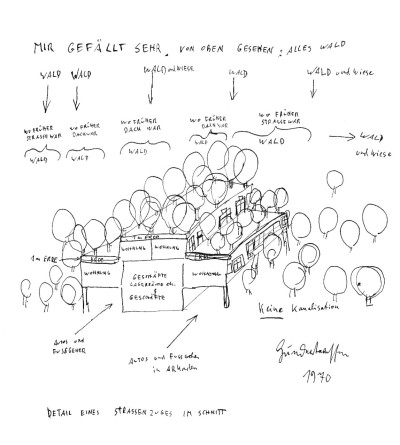 MIR GEFÄLLT SEHR, VON OBEN GESEHEN: ALLES WALD
WALD WALD WALD und WIESE WALD WALD und wiese
WO FRÜHER STRASSE WAR
WO FRÜHER DACH WAR
WO FRÜHER DACH WAR
WO FRÜHER DACH WAR
WO FRÜHER STRASSE WAR
WALD WALD WALD WALD WALD
WALD
und wiese
1m ERDE
WOHNUNG WOHNUNG
1m ERDE ERDE ERDE
WOHNUNG WOHNUNG
GESCHÄFTE
LAGERRÄUME etc.
GESCHÄFTE
Keine Kanalisation
AUTOS UND
FUSSGEHER
AUTOS und Fussgeher
in ARKaden
Hundertwasser
1970
DETAIL EINES STRASSENZUGES IM SCHNITT